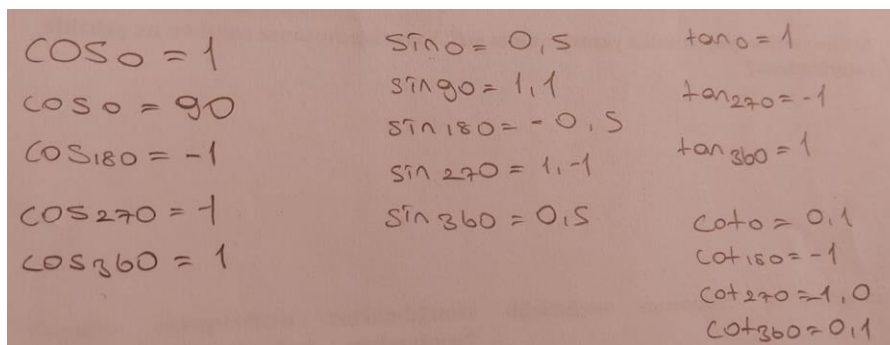 cos0 = 1
cos0 = 90
cos180 = -1
cos270 = 1
cos360 = 1
sin0 = 0,5
sin90 = 1,1
sin180 = -0,5
sin270 = 1,-1
sin360 = 0,5
tan0 = 1
tan270 = -1
tan360 = 1
cot0 = 0,1
cot180 = -1
cot270 = 1,0
cot360 = 0,1